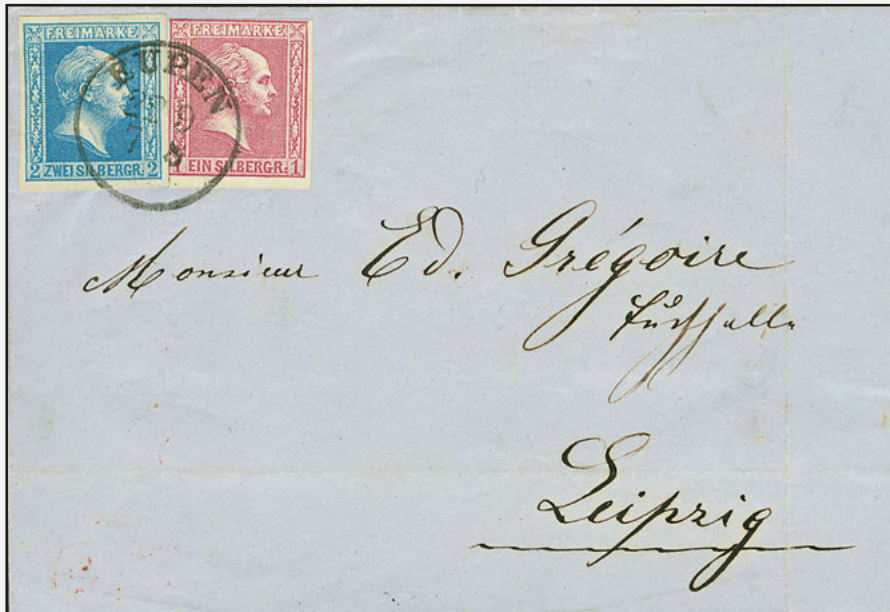 FREIMARKE
2 ZWEI SILBERGR. 2
FREIMARKE
1 EIN SILBERGR. 1
EUPEN
Monsieur Ed. Grégoire
Leipzig